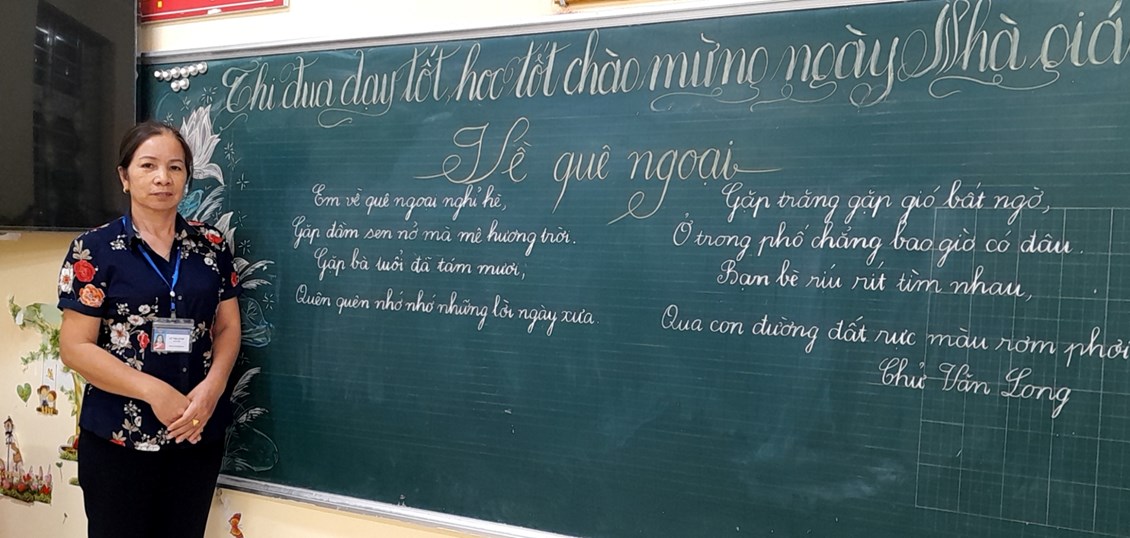 Thi đua dạy tốt, học tốt chào mừng ngày Nhà giá
Về quê ngoại
Em về quê ngoại nghỉ hè,
Gặp đầm sen nở mà mê hương trời.
Gặp bà tuổi đã tám mươi,
Quên quên nhớ nhớ những lời ngày xưa.
Gặp trăng gặp gió bất ngờ,
Ở trong phố chẳng bao giờ có đâu.
Bạn bè ríu rít tìm nhau,
Qua con đường đất rực màu rơm phơi
Chử Văn Long